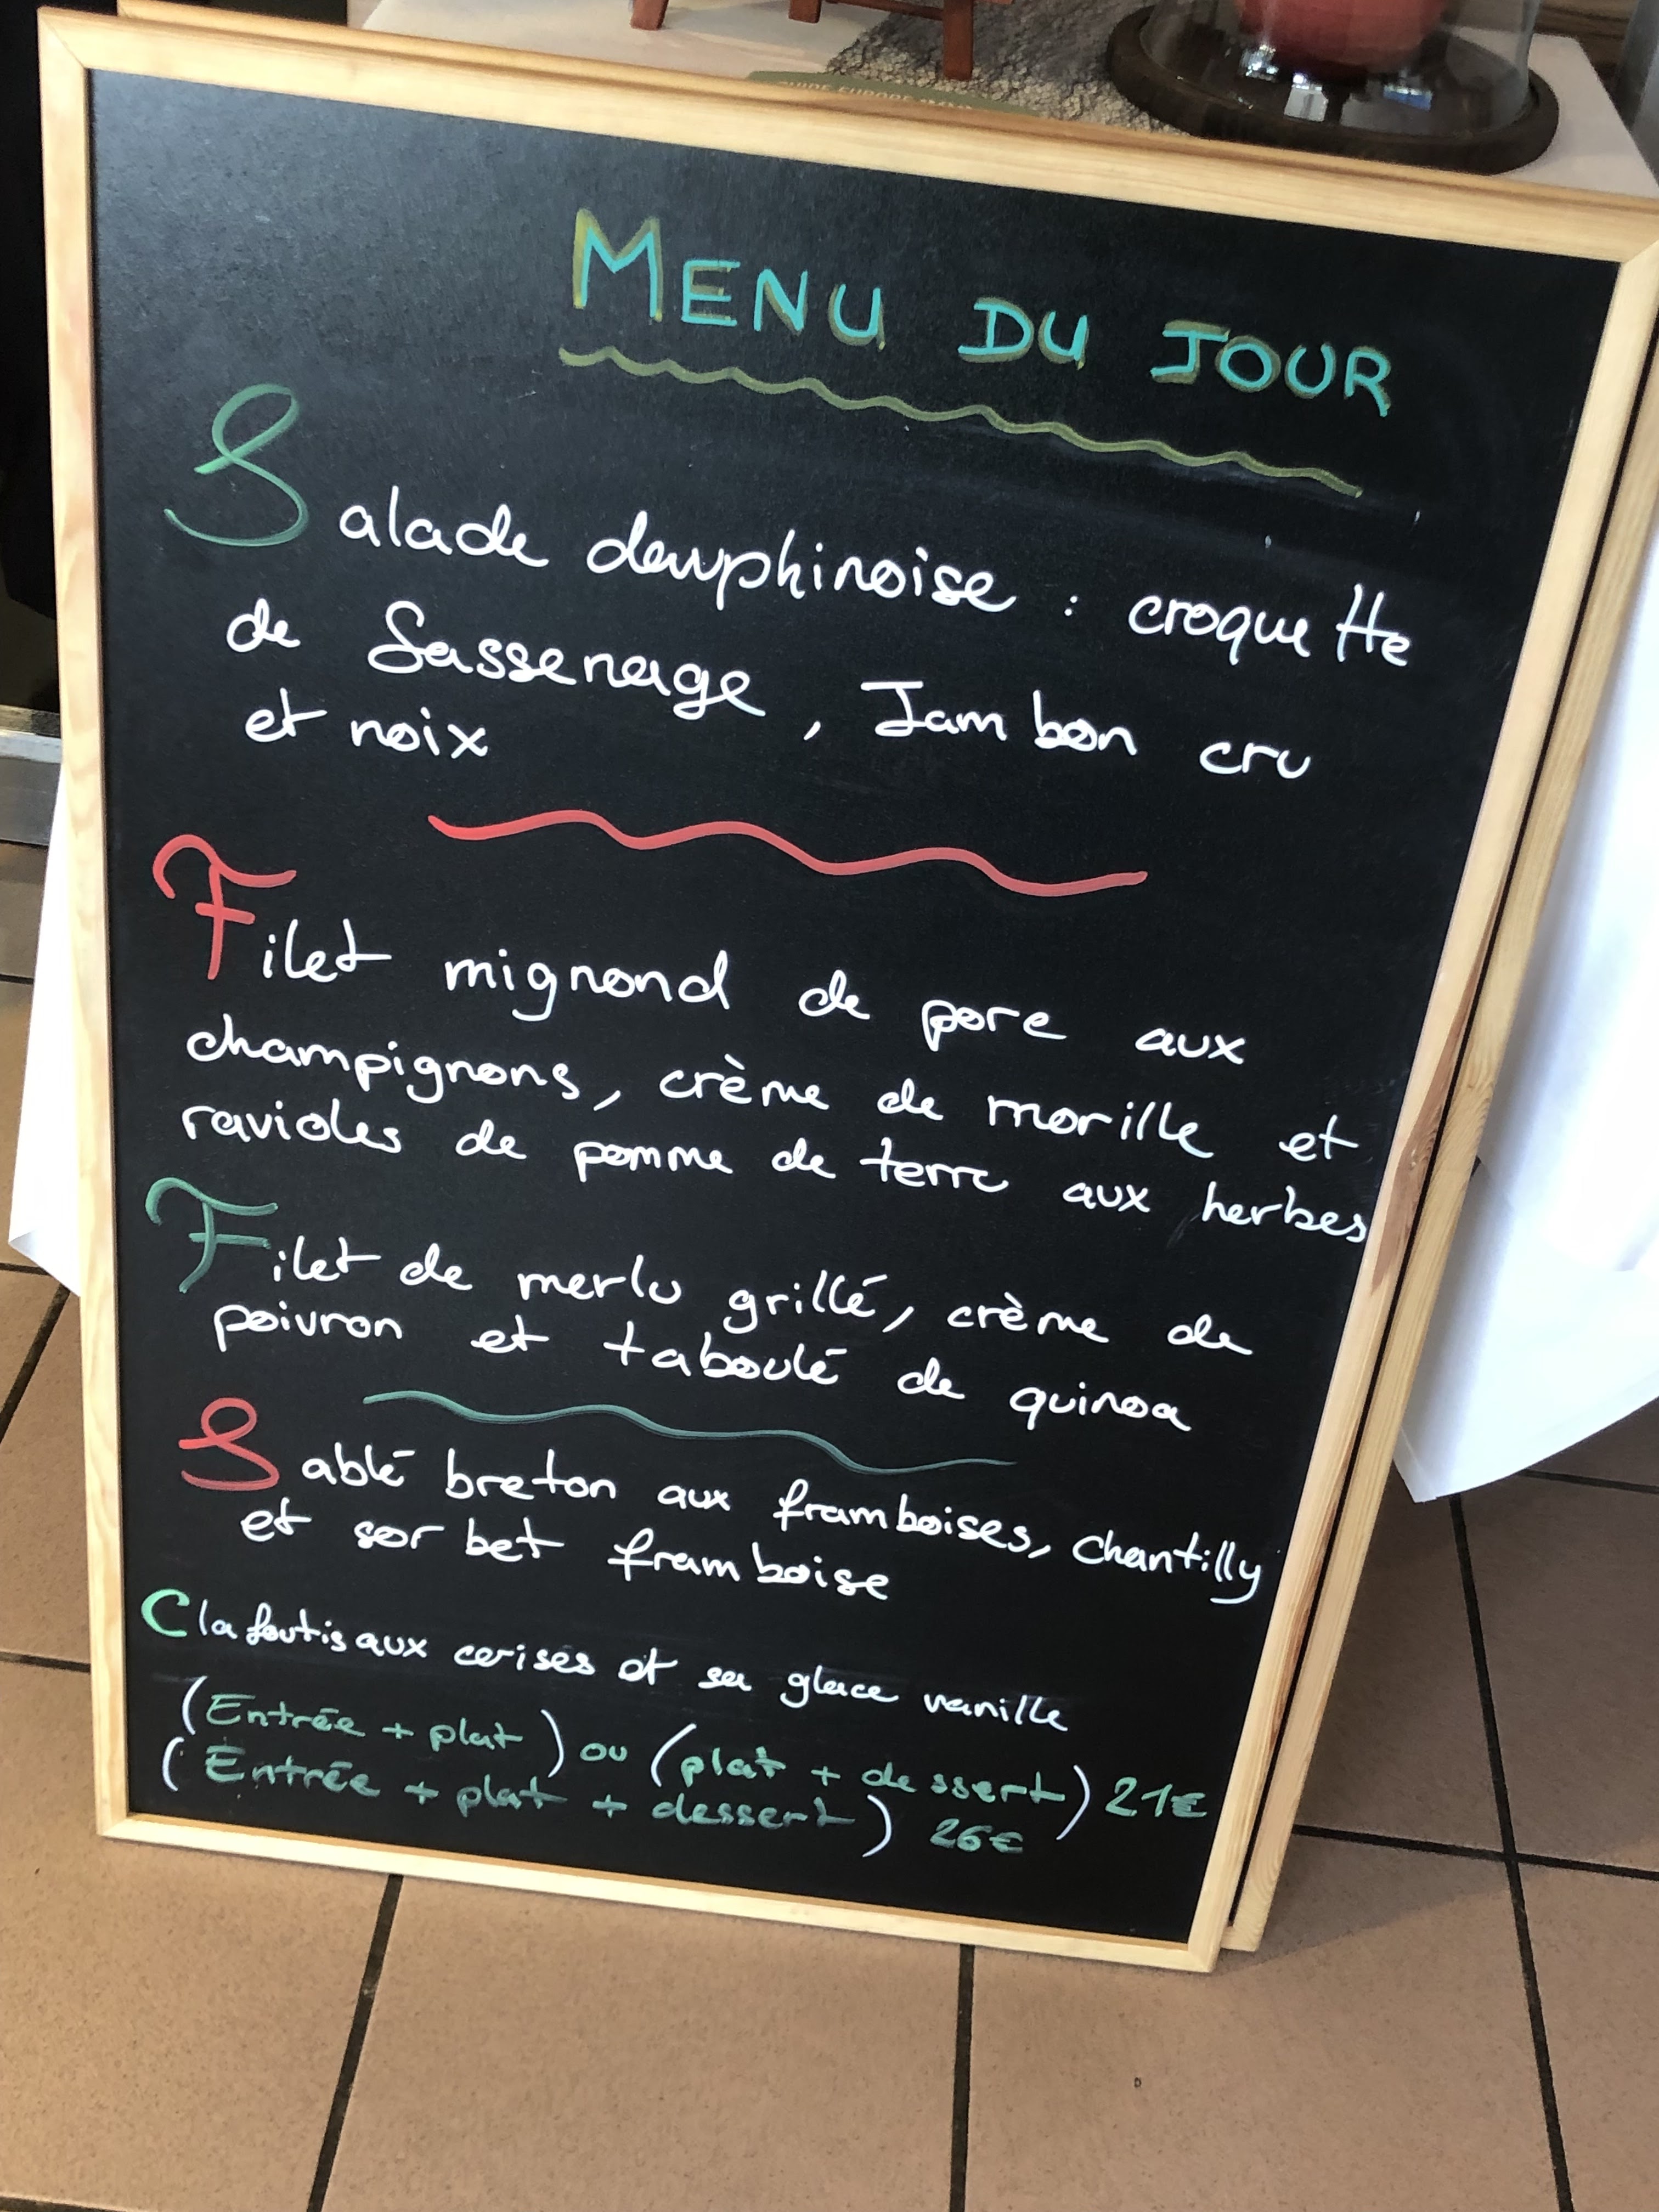 MENU DU JOUR
Salade dauphinoise : croquette
de Sassenage, Jambon cru
et noix
Filet mignond de porc aux
champignons, crème de morille et
ravioles de pomme de terre aux herbes
Filet de merlu grillé, crème de
poivron et taboulé de quinoa
Sablé breton aux framboises, chantilly
et sorbet framboise
Clafoutis aux cerises et sa glace vanille
(Entrée + plat) ou (plat + dessert) 21€
(Entrée + plat + dessert) 26€